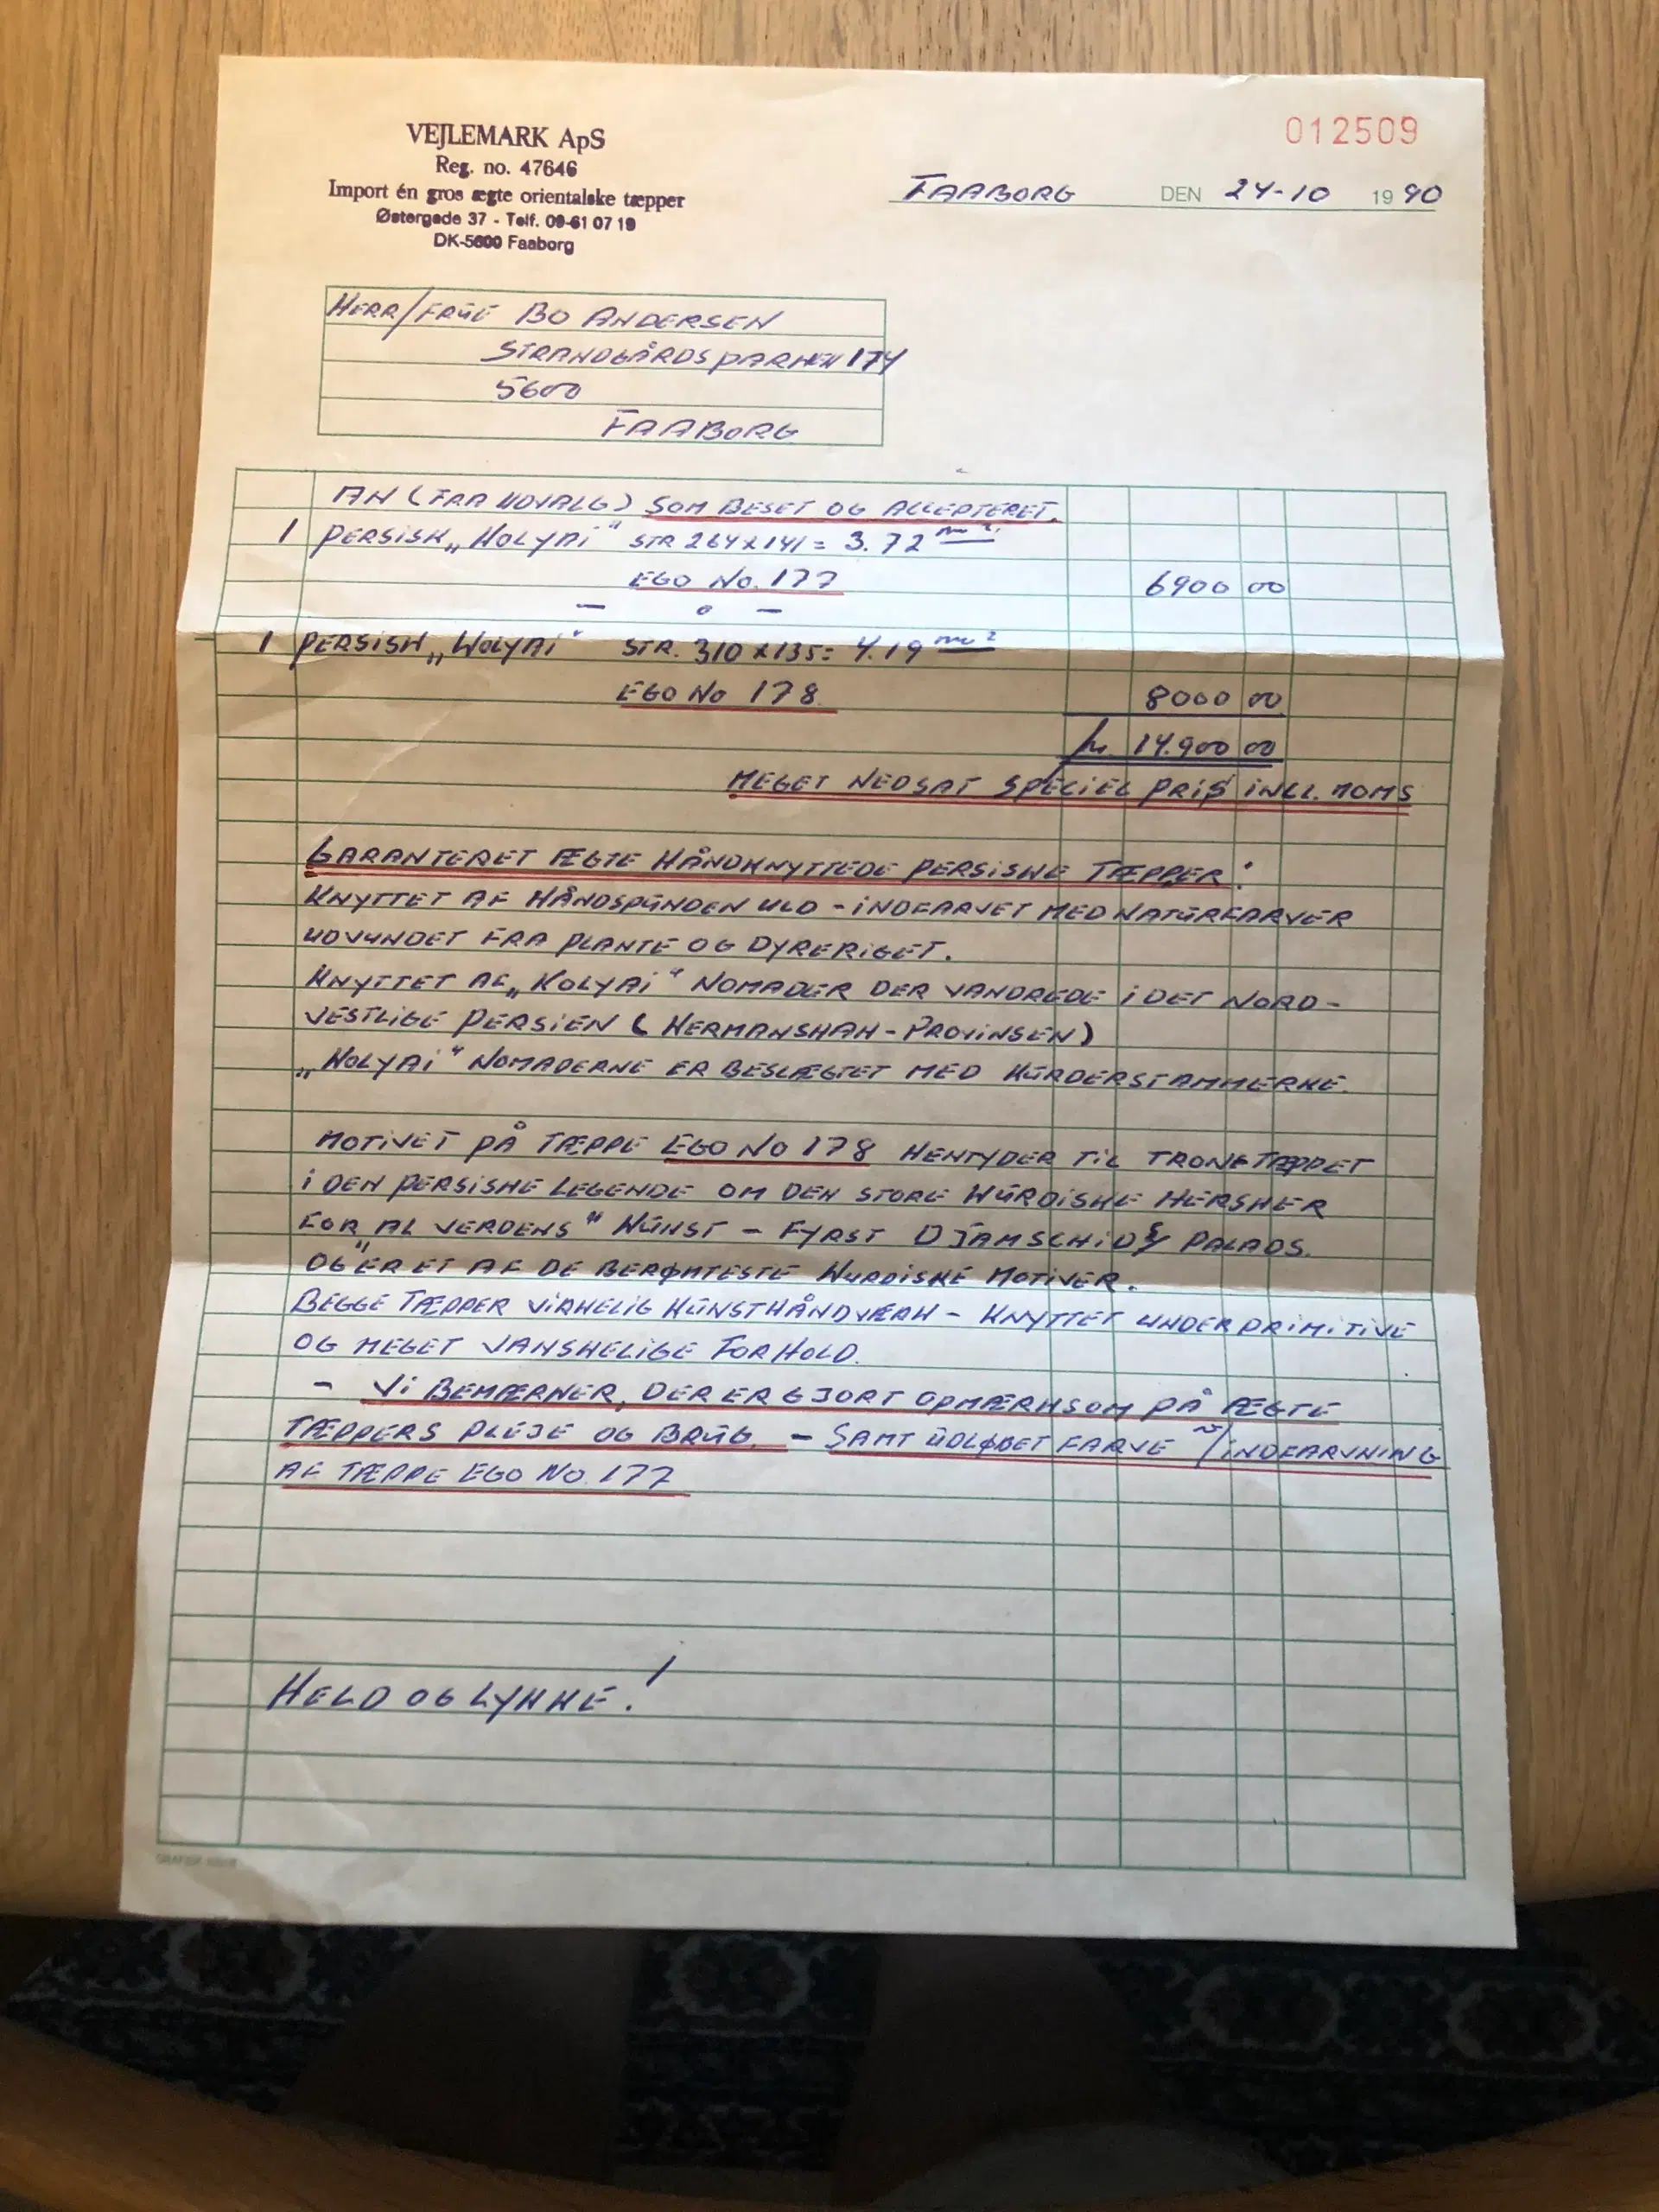 VEJLEMARK ApS
Reg. no. 47646
Import én gros ægte orientalske tæpper
Østergade 37 - Telf. 09-61 07 19
DK-5600 Faaborg
012509
FAABORG DEN 24-10 1990
HERR/FRUE BO ANDERSEN
STRANDGÅRDSPARKEN 174
5600
FAABORG
AN (FRA UDVALG) SOM BESET OG ACCEPTERET.
1 PERSISK „KOLYAI" STR 264X141 = 3.72 m².
EGO No. 177 6900 00
— o —
1 PERSISK „KOLYAI" STR. 310X135= 4.19 m²
EGO No 178 8000 00
kr. 14.900 00
MEGET NEDSAT SPECIEL PRIS INCL. MOMS
GARANTERET ÆGTE HÅNDKNYTTEDE PERSISKE TÆPPER:
KNYTTET AF HÅNDSPUNDEN ULD - INDFARVET MED NATURFARVER
UDVUNDET FRA PLANTE OG DYRERIGET.
KNYTTET AF „KOLYAI" NOMADER DER VANDREDE I DET NORD-
VESTLIGE PERSIEN (KERMANSHAH-PROVINSEN)
„KOLYAI" NOMADERNE ER BESLÆGTET MED KURDERSTAMMERNE.
MOTIVET PÅ TÆPPE EGO No 178 HENTYDER TIL TRONETÆPPET
I DEN PERSISKE LEGENDE OM DEN STORE KURDISKE HERSKER
FOR „AL VERDENS" KUNST - FYRST DJAMSCHIDS PALADS.
OG ER ET AF DE BERØMTESTE KURDISKE MOTIVER.
BEGGE TÆPPER VIRKELIG KUNSTHÅNDVÆRK - KNYTTET UNDER PRIMITIVE
OG MEGET VANSKELIGE FORHOLD.
- VI BEMÆRKER, DER ER GJORT OPMÆRKSOM PÅ ÆGTE
TÆPPERS PLEJE OG BRUG. - SAMT UDLØBET FARVE /INDFARVNING
AF TÆPPE EGO No. 177
HELD OG LYKKE!